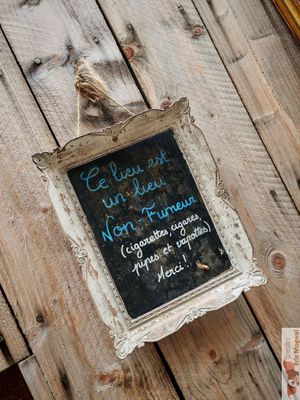 Ce lieu est
un lieu
Non-Fumeur
(cigarettes, cigares,
pipes et vapottes)
Merci!